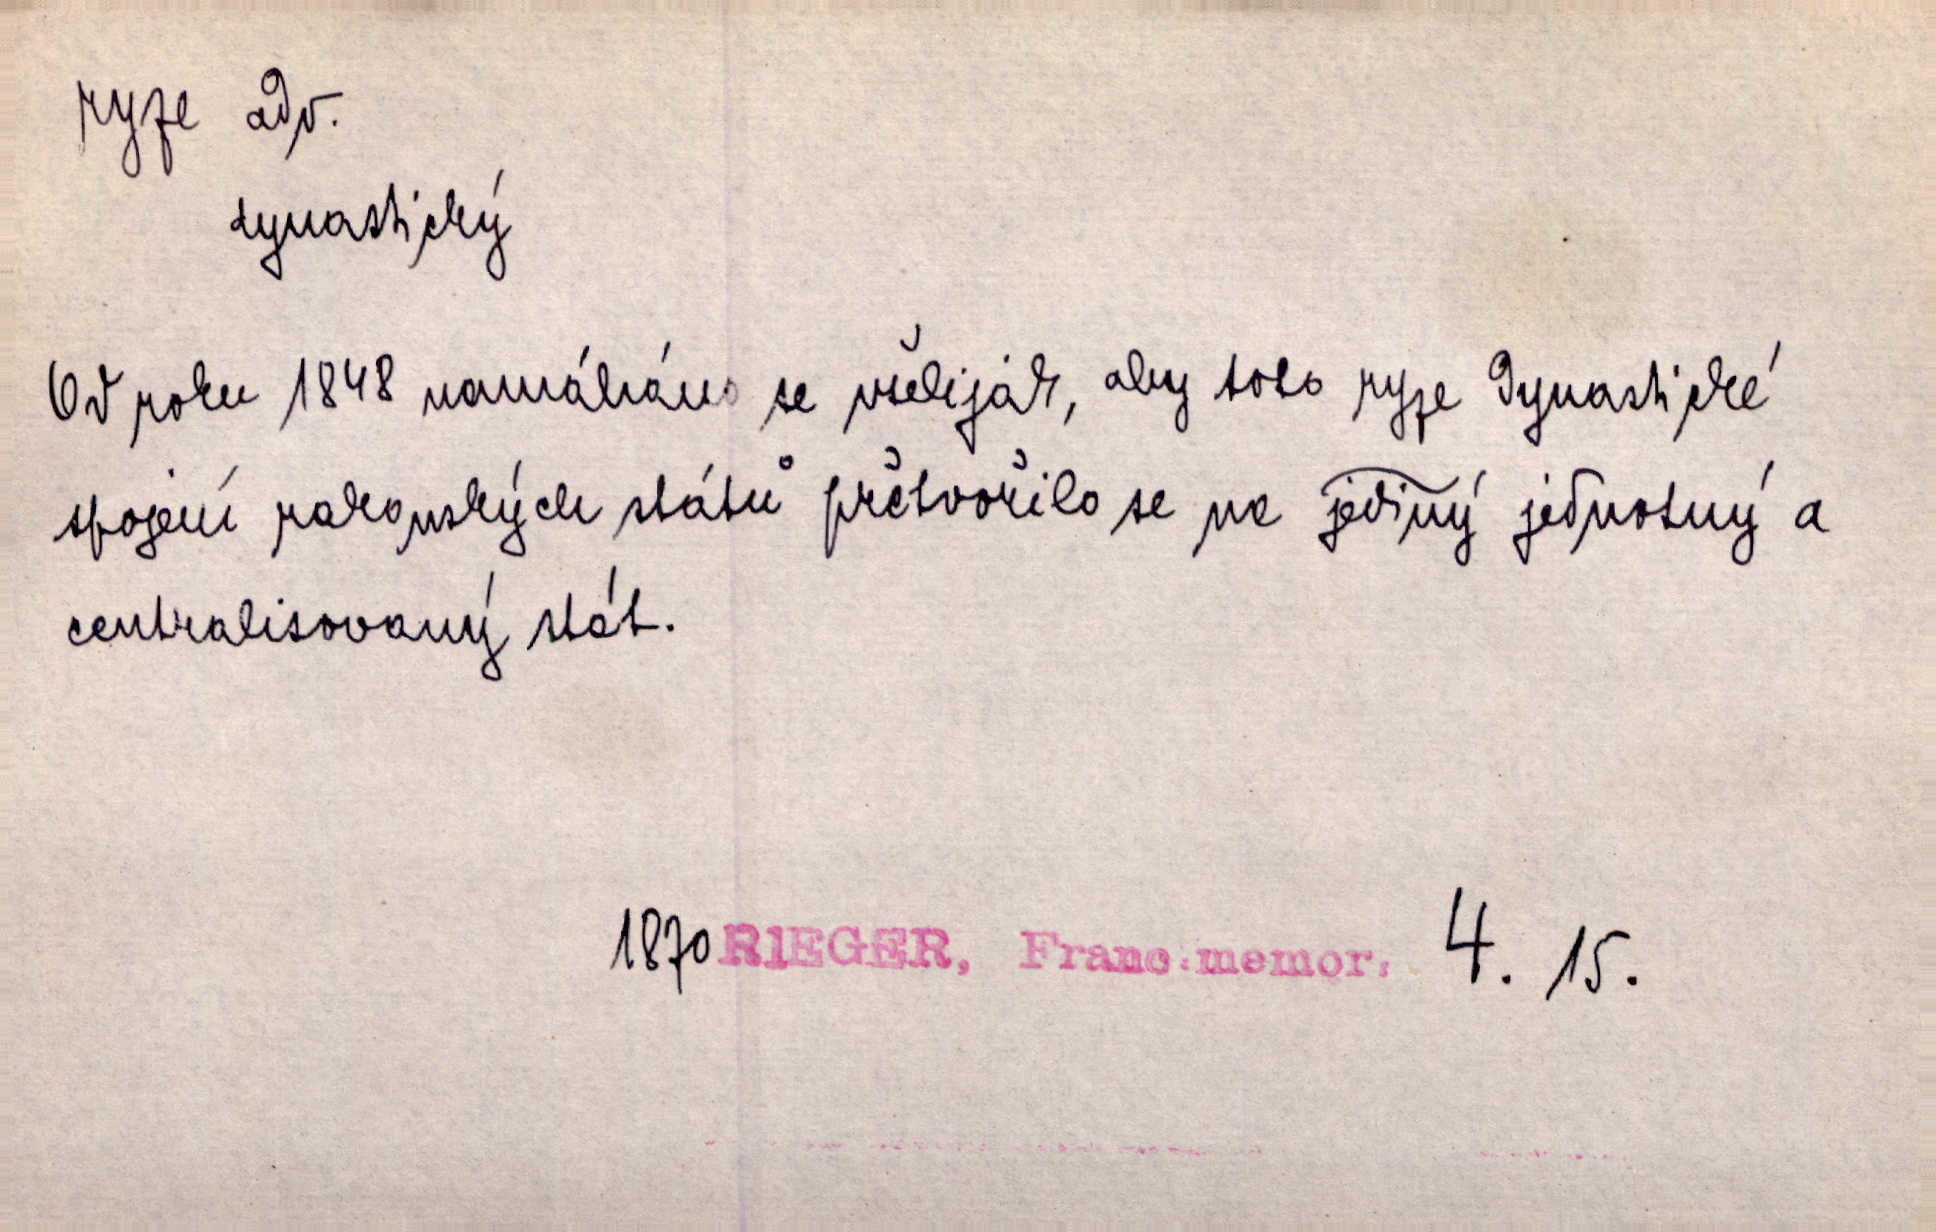 ryze adv.
dynastický
Od roku 1848 namáháno se všeliják, aby toto ryze dynastické
spojení rakouských států přetvořilo se na jediný jednotný a
centralisovaný stát.
1870 RIEGER, Franc. memor. 4. 15.